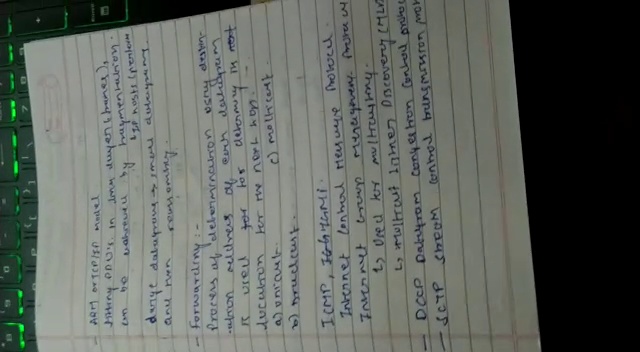 - ARM or TCP/IP model
fitting PDU's in link layer (frames),
can be achieved by fragmentation.
↳ IP hosts perform
large datagram → small datagram
and then reassembly.
- Forwarding :-
Process of determination using destin-
-ation address of each datagram
is used for determing
location for the next hop.
a) unicast. c) multicast.
b) broadcast.
ICMP, IGMP.
Internet Control Message Protocol.
Internet Group Management Protocol
↳ Used for multicasting.
↳ Multicast Listner Discovery (ML
- DCCP Datagram Congestion Control protoco
- SCTP Stream control transmission pro